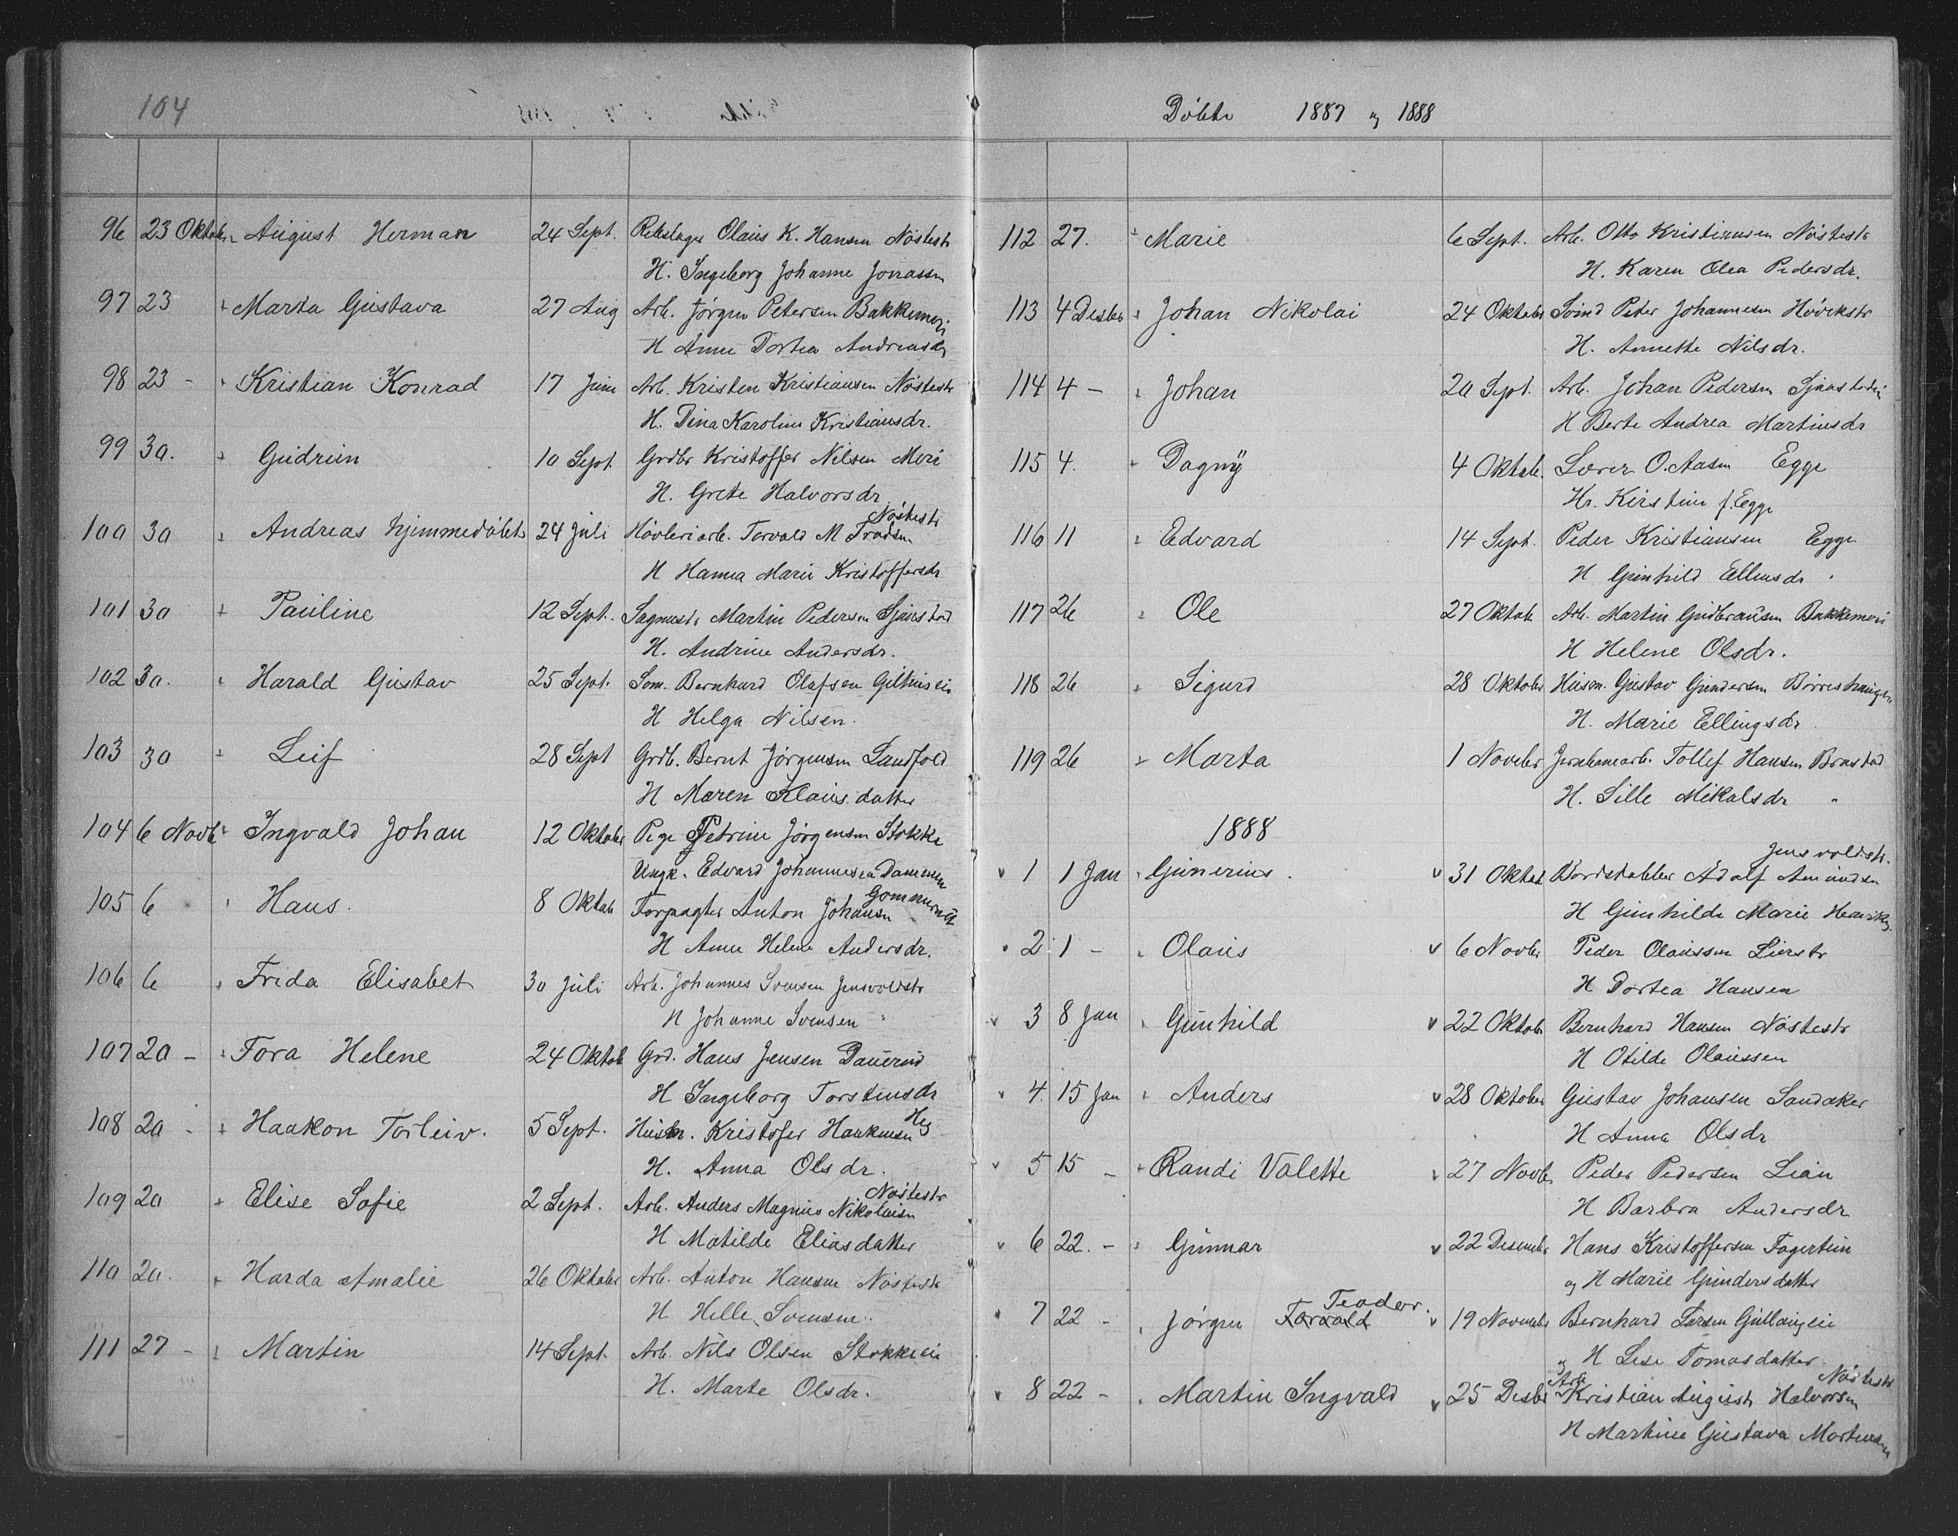 104
96 23 Oktob. August Herman 24 Sept. Rebslager Olaus K. Hansen Nøstestr
H. Ingeborg Johanne Jonassen
97 23 Marta Gustava 27 Aug Arb. Jørgen Petersen Bakkemeri
H Anne Dortea Andreasdr
98 23 - Kristian Konrad 17 Juni Arb. Kristen Kristiansen Nøstestr
H. Dina Karoline Kristiansdr.
99 30. Gudrun 10 Sept Grdbr Kristoffer Nilsen Meri
H. Grete Halvorsdr
Nøstestr
100 30 Andreas hjemmedøbt 24 Juli Høvleriarb. Torvald M
H Hanna Marie Kristoffersdr
101 30 Pauline 12 Sept. Sagmest. Martin Pedersen Sjaastad
H. Andrine Andersdr.
102 30. Harald Gustav 25 Sept. Søm. Bernhard Olafsen
H Helga Nilsen.
103 30 Leif 28 Sept Grdb. Bernt Jørgensen Landfald
H Maren Klausdatter
104 6 Novb Ingvald Johan 12 Oktober Pige Petrine Jørgensen Stokke
Ungk. Edvard Johannesen Dammen
105 6 Hans. 8 Oktob Forpagter Anton Johansen
H Anne Helene Andersdr.
106 6 Frida Elisabet 30 Juli Arb. Johannes Svensen Jensvoldstr
H Johanne Svensen "
107 20 - Tora Helene 24 Oktob Grd. Hans Jensen Dauerud
H Ingeborg Torstensdr
Heg
108 20 - Haakon Torleiv. 5 Sept. Husm. Kristofer Haakensen
H. Anna Olsdr.
Nøstestr
109 20 Elise Sofie 2 Sept. Arb. Anders Magnus Nikolaisen
H Matilde Eliasdatter
110 20. Harda Amalie 26 Oktober Arb. Anton Hansen Nøstestr
H Helle Svensen
111 27 - Martin 14 Sept. Arb. Nils Olsen Stokkeeie
H. Marte Olsdr.
Døbte 1887 og 1888
112 27. Marie 6 Sept. Arb. Otto Kristiansen Nøstestr
H. Karen Olea Pedersdr.
113 4 Desbr Johan Nikolai 24 Oktober Smed Peter Johannesen Høvikstr
H. Annette Nilsdr.
114 4 - Johan 20 Sept. Arb. Johan Pedersen
H Berte Andrea Martinsdr
115 4. Dagny 4 Oktob. Lærer O. Aasen Egge
Hr. Kirstine f. Egge
116 11 Edvard 14 Sept. Peder Kristiansen Egge
H Gunhild Ellensdr "
117 26 Ole 27 Oktob Arb. Martin Gudbransen Bakkemeri
H Helene Olsdr.
118 26 Sigurd 28 Oktober Husm. Gustav Gundersen
H. Marie Ellingsdr
119 26 Marta 1 Novebr Jernbanearb. Tollef Hansen Brastad
H. Sille Mikalsdr "
1888
Jensvoldstr.
1 1 Jan Gunerius. 31 Oktob Bordstabler Adolf Amundsen
H Gunhilde Marie
2 1 - Olaus 6 Novbr Peder Olaussen Lierstr
H Dortea Hansen
3 8 Jan Gunhild 22 Oktob Bernhard Hansen Nøstestr
H Otilde Olaussen
4. 15 Jan Anders 28 Oktober Gustav Johansen Sandaker
H Anna Olsdr
5 15 - Randi Valette 27 Novbr Peder Pedersen Lian
H Barbra Andersdr
6 22. - Gunnar 22 Desembr Hans Kristoffersen Fagertun
og H Marie Gundersdatter
Teodor.
7 22 - Jørgen Torvald 19 Novembr Bernhard Larsen Gullaugeie
og H Lese Tomasdatter
Arb Nøstestr
8 22 - Martin Ingvald 25 Desbr Kristian August Halvorsen
H Martine Gustava Mortensen